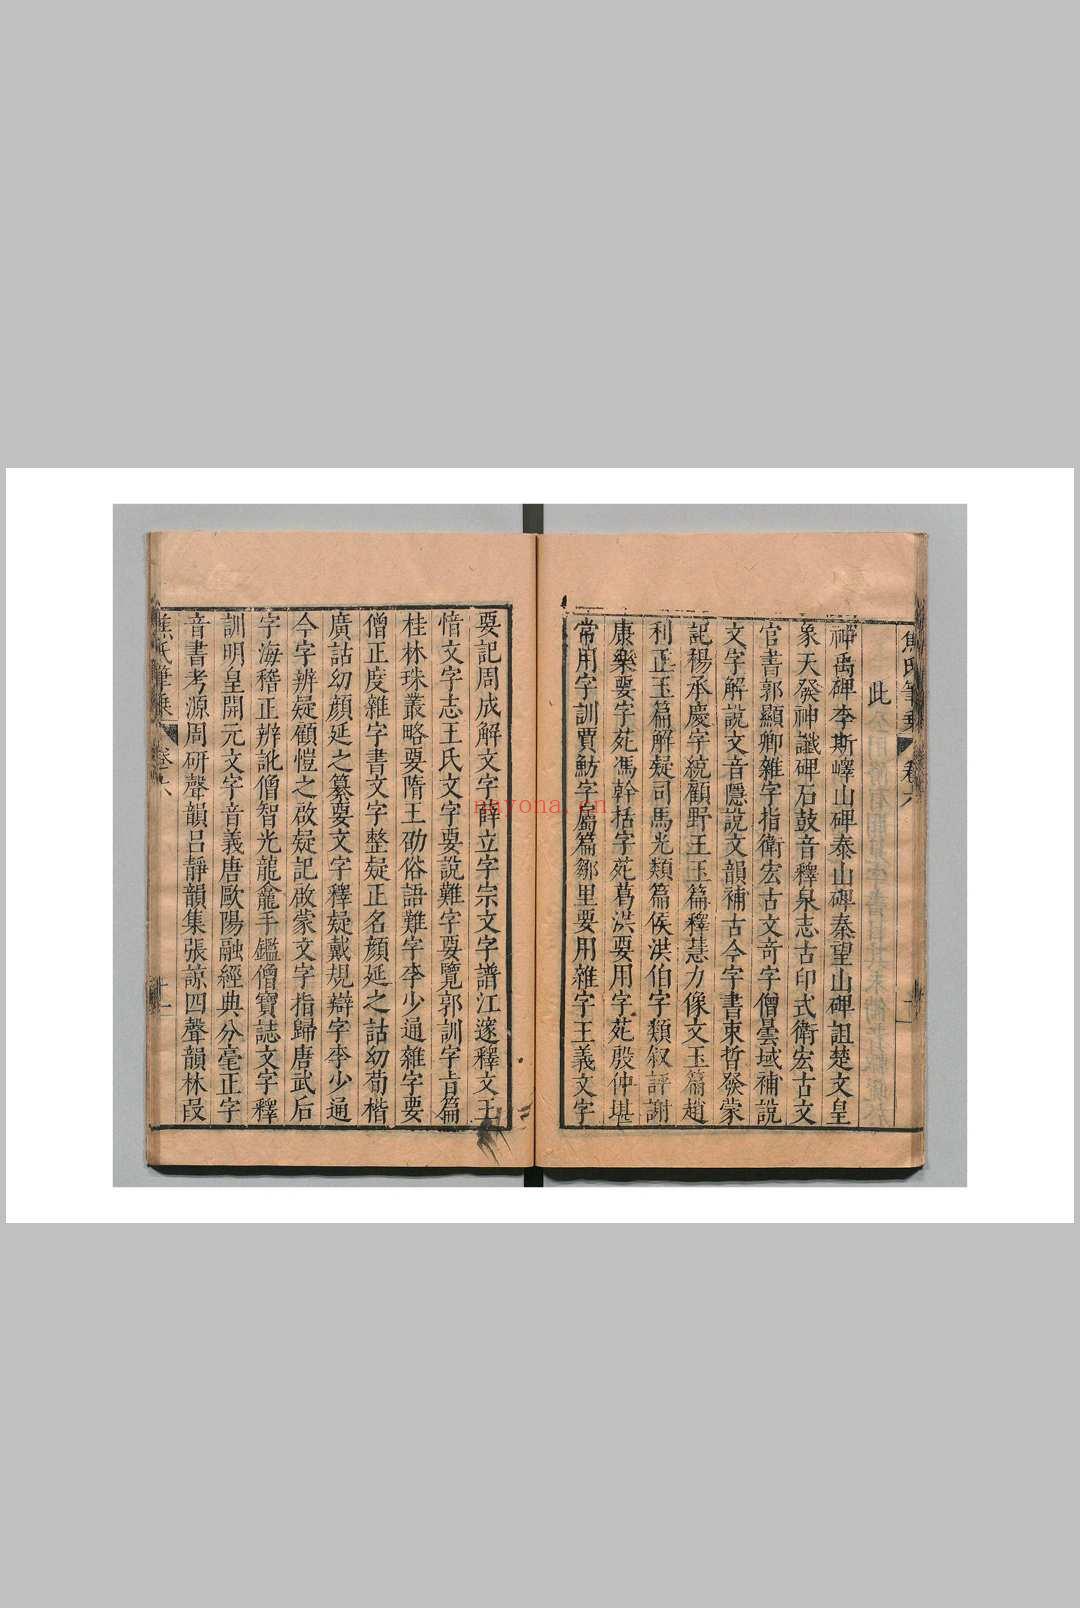 焦氏筆乗 卷六 十一
此
神禹碑李斯嶧山碑泰山碑秦望山碑詛楚文皇
象天發神讖碑石鼓音釋泉志古印式衛宏古文
官書郭顯卿雜字指衛宏古文奇字僧曇域補說
文字解說文音隱說文韻補古今字書束晳發蒙
記楊承慶字統顧野王玉篇釋慧力像文玉篇趙
利正玉篇解疑司馬光類篇侯洪伯字類叙評謝
康樂要字苑馮幹括字苑葛洪要用字苑殷仲堪
常用字訓賈魴字屬篇鄒里要用雜字王義文字
要記周成解文字薛立字宗文字譜江邃釋文王
愔文字志王氏文字要說難字要覽郭訓字旨篇
桂林珠叢略要隋王劭俗語難字李少通雜字要
僧正度雜字書文字整疑正名顏延之詁幼荀楷
廣詁幼顏延之纂要文字釋疑戴規辯字李少通
今字辨疑顧愷之啟疑記啟蒙文字指歸唐武后
字海稽正辨訛僧智光龍龕手鑑僧寶誌文字釋
訓明皇開元文字音義唐歐陽融經典分毫正字
音書考源周研聲韻呂靜韻集張諒四聲韻林叚
焦氏筆乗 卷六 十一
nayona.cn